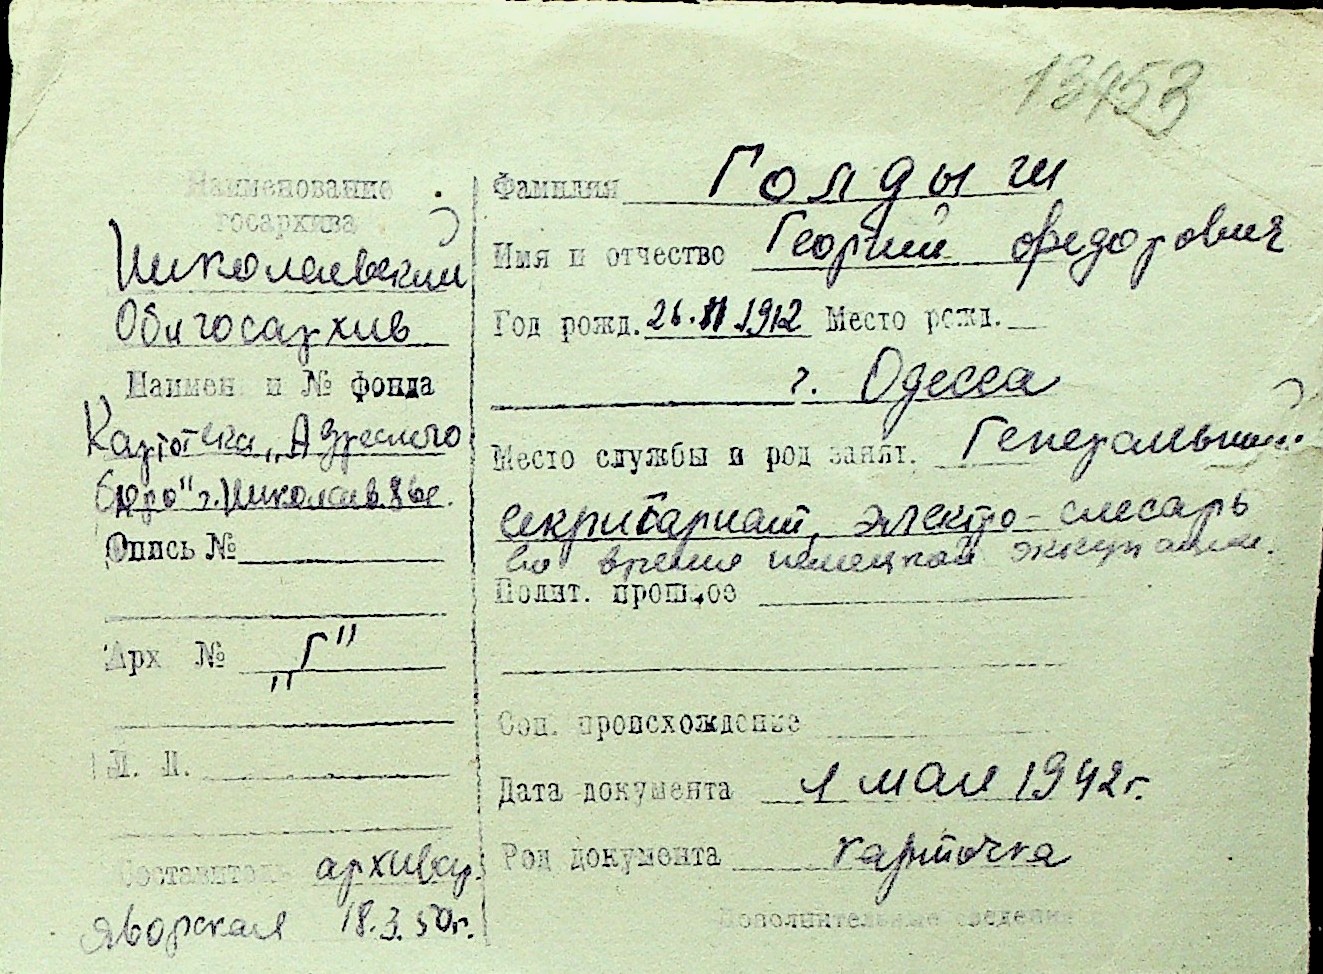 13453
Наименование
госархива
Николаевский
Облгосархив
Наимен и № фонда
Картотека „Адресного
бюро" г. Николаев
Опись №
Арх № „Г"
Л. Л.
Составитель архивар.
Яворская 18.3.50г.
Фамилия Голдыш
Имя и отчество Георгий Федорович
Год рожд. 26.II.1912 Место рожд.
г. Одесса
Место службы и род занят. Генеральный
секритариат, электро-слесарь
во время немецкой
Полит. прошлое
Соц. происхождение
Дата документа 1 мая 1942г.
Род документа карточка
Дополнительные сведения